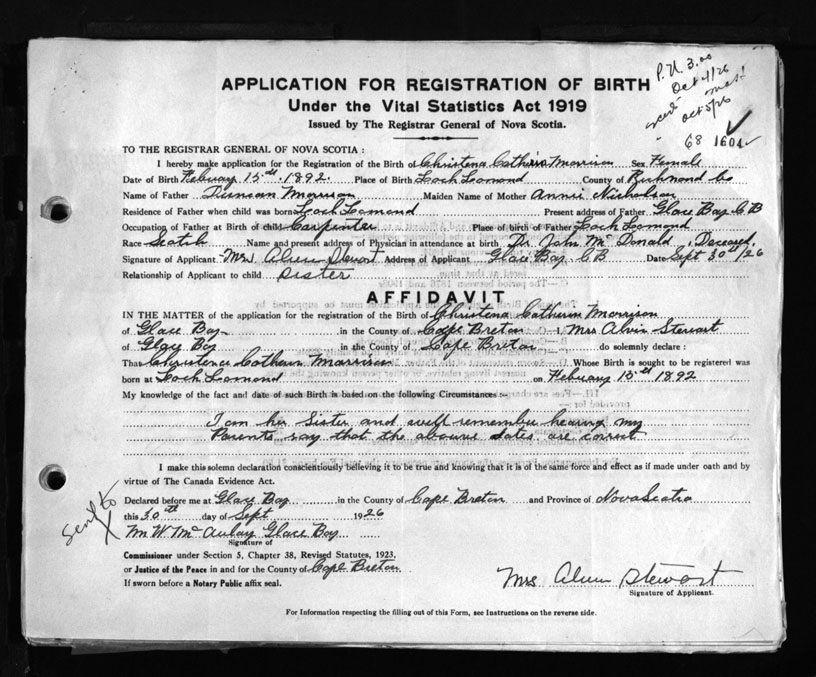 APPLICATION FOR REGISTRATION OF BIRTH
Under the Vital Statistics Act 1919
Issued by The Registrar General of Nova Scotia.
P.N. 3.00
Oct 4/26
Oct 5/26
68 1604
TO THE REGISTRAR GENERAL OF NOVA SCOTIA :
I hereby make application for the Registration of the Birth of Christena Morrison Sex Female
Date of Birth February 15th 1892. Place of Birth Loch Lomond County of Richmond Co
Name of Father Duncan Morrison Maiden Name of Mother Annie Nicholson
Residence of Father when child was born Loch Lomond Present address of Father Glace Bay C B
Occupation of Father at Birth of child Carpenter Place of birth of Father Loch Lomond
Race Scotch Name and present address of Physician in attendance at birth Dr. John Mc Donald, Deceased.
Signature of Applicant Mrs Alvin Stewart Address of Applicant Glace Bay C B Date Sept 30th/26
Relationship of Applicant to child Sister
AFFIDAVIT
IN THE MATTER of the application for the registration of the Birth of Christena Catherin Morrison
of Glace Bay in the County of Cape Breton I, Mrs Alvin Stewart
of Glace Bay in the County of Cape Breton do solemnly declare :
That Christena Catherin Morrison Whose Birth is sought to be registered was
born at Loch Lomond on February 15th 1892
My knowledge of the fact and date of such Birth is based on the following Circumstances :-
I am her Sister and well remember hearing my
Parents say that the above dates are correct
I make this solemn declaration conscientiously believing it to be true and knowing that it is of the same force and effect as if made under oath and by
virtue of The Canada Evidence Act.
Declared before me at Glace Bay in the County of Cape Breton and Province of Nova Scotia
this 30th day of Sept 1926
Sent to
Wm W. Mc Aulay Glace Bay
Signature of
Commissioner under Section 5, Chapter 38, Revised Statutes, 1923,
or Justice of the Peace in and for the County of Cape Breton
If sworn before a Notary Public affix seal.
Mrs Alvin Stewart
Signature of Applicant.
For Information respecting the filling out of this Form, see Instructions on the reverse side.